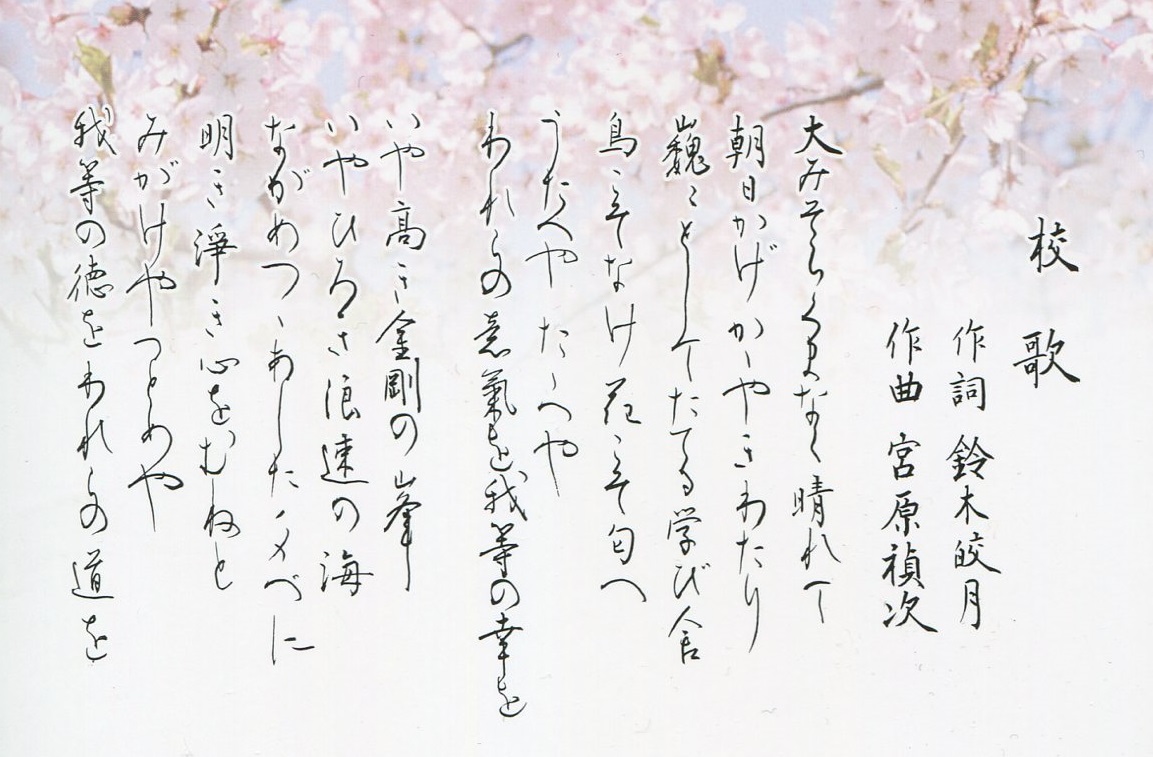 校歌
作詞 鈴木皎月
作曲 宮原禎次
大みそらくまなく晴れて
朝日かげかゞやきわたり
巍々としてたてる学び舎
鳥こそなけ花こそ匂へ
うたへや たゝへや
われらの意氣を我等の幸を
いや高き金剛の峯
いやひろき浪速の海
ながめつゝあしたタべに
明き淨き心をむねと
みがけやつとめや
我等の徳をわれらの道を